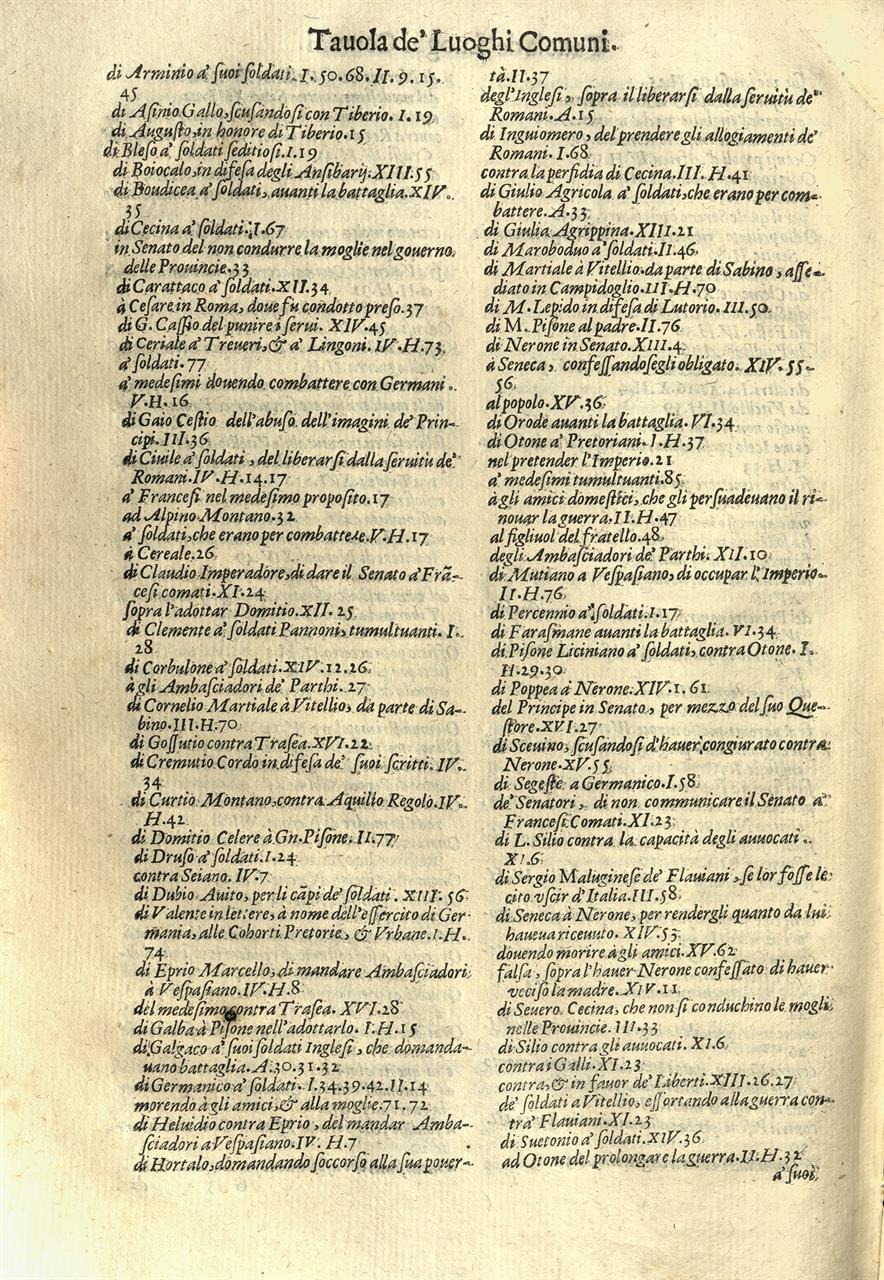 Tauola de' Luoghi Comuni.
di Arminio a' suoi soldati. I. 50. 68. II. 9. 15.
45
di Asinio Gallo, scusandosi con Tiberio. I. 19
di Augusto, in honore di Tiberio. 15
di Bleso a' soldati seditiosi. I. 19
di Boiocalo, in difesa degli Ansibarij. XIII. 55
di Boudicea a' soldati, auanti la battaglia. XIV.
35
di Cecina a' soldati. I. 67
in Senato del non condurre la moglie nel gouerno
delle Prouincie. 33
di Carattaco a' soldati. XII. 34
à Cesare in Roma, doue fu condotto preso. 37
di G. Cassio del punire i serui. XIV. 45
di Ceriale a' Treueri, & a' Lingoni. IV. H. 73
a' soldati. 77
a' medesimi douendo combattere con Germani.
V. H. 16
di Gaio Cestio dell'abuso dell'imagini de' Prin-
cipi. III. 36
di Ciuile a' soldati, del liberarsi dalla seruitù de'
Romani. IV. H. 14. 17
a' Francesi nel medesimo proposito. 17
ad Alpino Montano. 32
a' soldati, che erano per combattere. V. H. 17
à Cereale. 26
di Claudio Imperadore, di dare il Senato a' Frã-
cesi comati. XI. 24
sopra l'adottar Domitio. XII. 25
di Clemente a' soldati Pannoni, tumultuanti. I.
28
di Corbulone a' soldati. XIV. 12. 26
à gli Ambasciadori de' Parthi. 27
di Cornelio Martiale à Vitellio, da parte di Sa-
bino. III. H. 70
di Gossutio contra Trasea. XVI. 22
di Cremutio Cordo in difesa de' suoi scritti. IV.
34
di Curtio Montano, contra Aquilio Regolo. IV.
H. 42
di Domitio Celere à Gn. Pisone. II. 77
di Druso a' soldati. I. 24
contra Seiano. IV. 7
di Dubio Auito, per li cãpi de' soldati. XIII. 56
di Valente in lettere, à nome dell'essercito di Ger
mania, alle Cohorti Pretorie, & Vrbane. I. H.
74
di Eprio Marcello, di mandare Ambasciadori
à Vespasiano. IV. H. 8
del medesimo contra Trasea. XVI. 28
di Galba à Pisone nell'adottarlo. I. H. 15
di Galgaco a' suoi soldati Inglesi, che domanda-
uano battaglia. A. 30. 31. 32
di Germanico a' soldati. I. 34. 39. 42. II. 14
morendo à gli amici, & alla moglie. 71. 72
di Heluidio contra Eprio, del mandar Amba-
sciadori a Vespasiano. IV. H. 7
di Hortalo, domandando soccorso alla sua pouer-
tà. II. 37
degl'Inglesi, sopra il liberarsi dalla seruitù de'
Romani. A. 15
di Inguiomero, del prendere gli allogiamenti de'
Romani. I. 68
contra la perfidia di Cecina. III. H. 41
di Giulio Agricola a' soldati, che erano per com-
battere. A. 33
di Giulia Agrippina. XIII. 21
di Maroboduo a' soldati. II. 46
di Martiale à Vitellio. da parte di Sabino, asse-
diato in Campidoglio. III. H. 70
di M. Lepido in difesa di Lutorio. III. 50
di M. Pisone al padre. II. 76
di Nerone in Senato. XIII. 4
à Seneca, confessandosegli obligato. XIV. 55-
56
al popolo. XV. 36
di Orode auanti la battaglia. VI. 34
di Otone a' Pretoriani. I. H. 37
nel pretender l'Imperio. 21
a' medesimi tumultuanti. 85
à gli amici domestici, che gli persuadeuano il ri-
nouar la guerra. II. H. 47
al figliuol del fratello. 48
degli Ambasciadori de' Parthi. XII. 10
di Mutiano a Vespasiano, di occupar l'Imperio.
II. H. 76
di Percennio a' soldati. I. 17
di Farasmane auanti la battaglia. VI. 34
di Pisone Liciniano a' soldati, contra Otone. I.
H. 29. 30
di Poppea à Nerone. XIV. 1. 61
del Principe in Senato, per mezzo del suo Que-
store. XVI. 27
di Sceuino, scusandosi d'hauer congiurato contra
Nerone. XV. 55
di Segeste a Germanico. I. 58
de' Senatori, di non communicare il Senato a'
Francesi Comati. XI. 23
di L. Silio contra la capacità degli auuocati.
XI. 6
di Sergio Maluginese de' Flauiani, se lor fosse le
cito vscir d'Italia. III. 58
di Seneca à Nerone, per rendergli quanto da lui
haueua riceuuto. XIV. 53
douendo morire à gli amici. XV. 62
falsa, sopra l'hauer Nerone confessato di hauer
vcciso la madre. XIV. 11
di Seuero Cecina, che non si conduchino le mogli
nelle Prouincie. III. 33
di Silio contra gli auuocati. XI. 6
contra i Galli. XI. 23
contra, & in fauor de' Liberti. XIII. 26. 27
de' soldati a Vitellio, essortando alla guerra con-
tra' Flauiani. XI. 23
di Suetonio a' soldati. XIV. 36
ad Otone del prolongare la guerra. II. H. 32
a' suoi